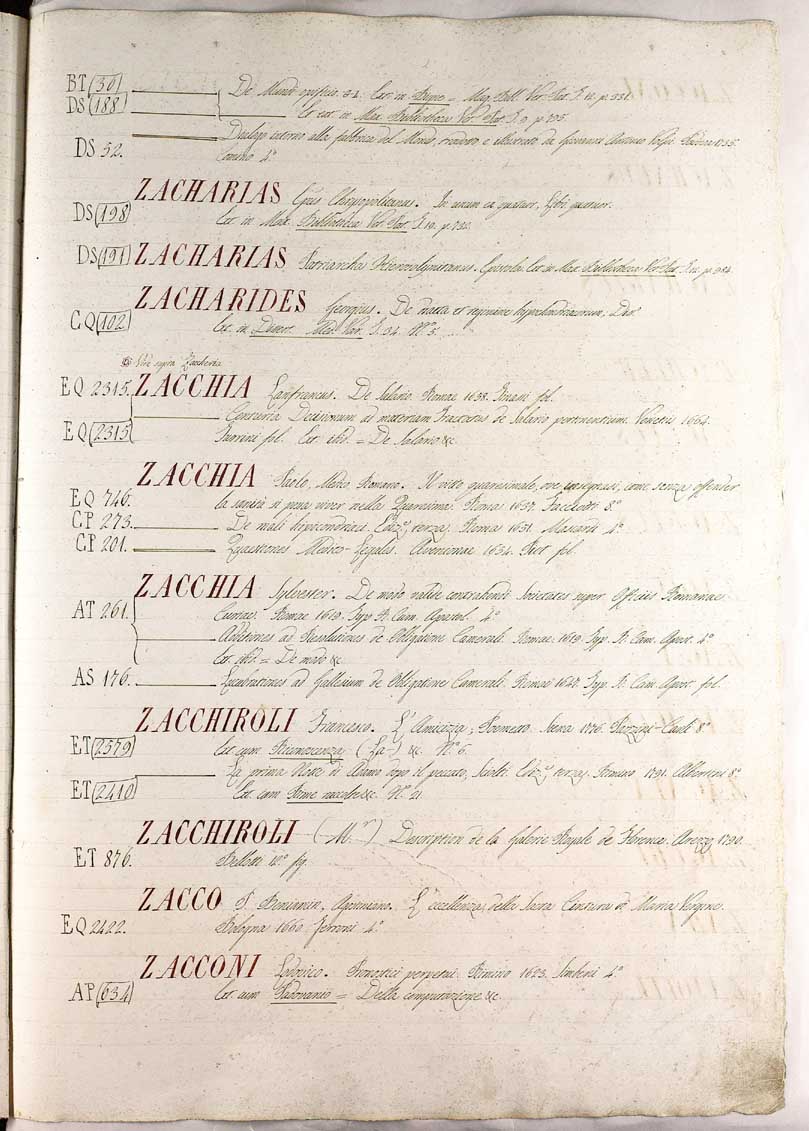 BT (301) De Mundi opificio. Ext. in Max. Bibl. Vet. Pat. T. 12. p.
DS (188) Et ext. in Max. Bibliotheca Vet. Pat. T. 9. p. 795.
Dialogo intorno alla fabbrica del Mondo, tradotto e illustrato da Giovanni Antonio Volpi. Padova 1735.
DS 52. Comino 4º
ZACHARIAS Epus Chrysopolitanus. In unum ex quatuor, Libri quatuor.
DS (198) Ext. in Max. Bibliotheca Vet. Pat. T. 19. p. 732.
DS (191) ZACHARIAS Patriarcha Hierosolymitanus. Epistola. Ext. in Max. Bibliotheca Vet. Pat. T. 12. p. 984.
ZACHARIDES Georgius. De diaeta et regimine hypochondriacorum, Diss.
CQ (102) Ext. in Dissert. Med. Var. T. 34. Nº 5.
Vide supra Zaccheria
EQ 2315. ZACCHIA Lanfrancus. De Salario. Romae 1658. fol.
Centuria Decisionum ad materiam Tractatus de Salario pertinentium. Venetiis 1664.
EQ (2315) fol. Ext. ibid. = De Salario &c.
ZACCHIA Paolo, Medico Romano. Il vitto quaresimale, ove insegnasi, come senza offender
EQ 746. la sanità si possa viver nella Quaresima. Roma 1637. Facciotti 8º
CP 273. De mali hipocondriaci. Ediz.e terza. Roma 1651. Mascardi 4º
CP 201. Quaestiones Medico-Legales. Avenione 1654. Piot fol.
ZACCHIA Sylvester. De modo valide contrahendi Societates super Officiis Romanae
AT 261. Curiae. Romae 1619. Typ. R. Cam. Apostol. 4º
Additiones ad Resolutiones de Obligatione Camerali. Romae 1619. Typ. R. Cam. Apost. 4º
Ext. ibid. = De modo &c.
AS 176. Lucubrationes ad Gallesium de Obligatione Camerali. Romae 1647. Typ. R. Cam. Apost. fol.
ZACCHIROLI Francesco. L'Amicizia, Poemetto. Siena 1776. Pazzini-Carli 8º
ET (2579) Ext. cum Riconoscenza (La-) &c. Nº 6.
La prima Notte di Adamo dopo il peccato, Sciolti. Ediz.e terza. Pesaro 1791. 8º
ET (2410) Ext. cum Rime raccolte &c. Nº 21.
ZACCHIROLI (M.r) Description de la Galerie Royale de Florence. Arezzo 1790.
ET 876. Bellotti 12º fig.
ZACCO P. Beniamin. Agostiniano. L'eccellenza della Sacra Centura di Maria Vergine.
EQ 2422. Bologna 1660. Ferroni 4º
ZACCONI Lodovico. Pronostici perpetui. Rimino 1623. Simbeni 4º
AP (634) Ext. cum Padovanio = Della computazione &c.